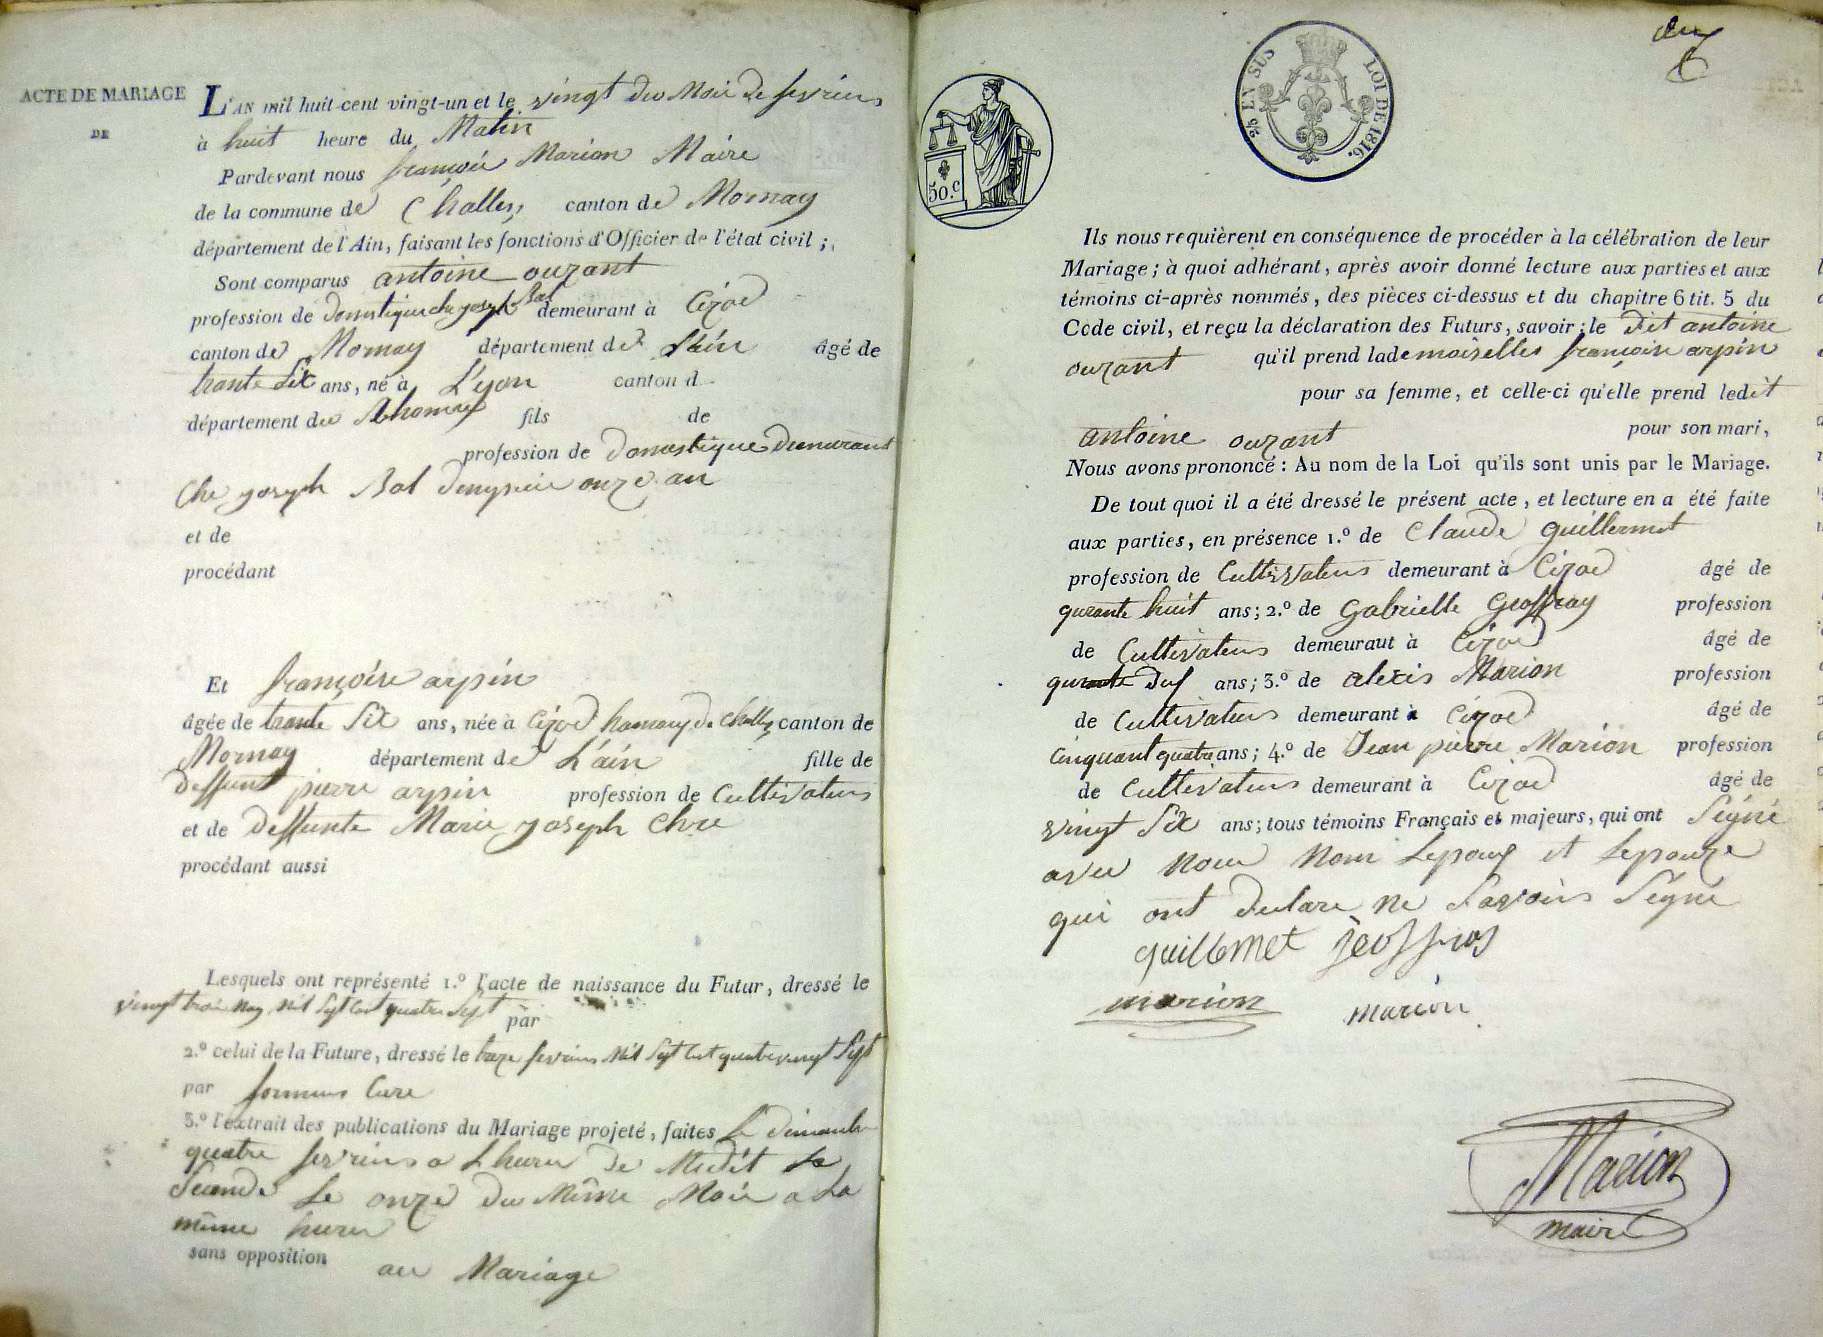 ACTE DE MARIAGE
DE
L'AN mil huit cent vingt-un et le vingt du Mois de fevrier
à huit heure du Matin
Pardevant nous françois Marion Maire
de la commune de Challes canton de Mornay
département de l'Ain, faisant les fonctions d'Officier de l'état civil ;
Sont comparus antoine ouzant
profession de domestique che joseph Bal demeurant à Cizod
canton de Mornay département de Lain âgé de
trante Six ans, né à Lyon canton d
département du Rhomne fils de
profession de domestique demeurant
Che joseph Bal onze an
et de
procédant
Et françoise arpin
âgée de trante Six ans, née à Cizod hamaux de Challes canton de
Mornay département de L'ain fille de
deffunt pierre arpin profession de Cultivateur
et de deffunte Marie joseph
procédant aussi
Lesquels ont représenté 1.º l'acte de naissance du Futur, dressé le
vingt trois May Mil Sept Cent quatre Sept par
2.º celui de la Future, dressé le fevrier Mil Sept Cent quatrevingt Sept
par Cure
3.º l'extrait des publications du Mariage projeté, faites Le dimanche
quatre fevrier a Lheure de Medit La
Seconde Le onze du Même Mois a La
même heure
sans opposition au Mariage
50.c
2/0 EN SUS
LOI DE 1816.
Ils nous requièrent en conséquence de procéder à la célébration de leur
Mariage ; à quoi adhérant, après avoir donné lecture aux parties et aux
témoins ci-après nommés, des pièces ci-dessus et du chapitre 6 tit. 5 du
Code civil, et reçu la déclaration des Futurs, savoir : le dit antoine
ouzant qu'il prend lademoiselles françoise arpin
pour sa femme, et celle-ci qu'elle prend ledit
antoine ouzant pour son mari,
Nous avons prononcé : Au nom de la Loi qu'ils sont unis par le Mariage.
De tout quoi il a été dressé le présent acte, et lecture en a été faite
aux parties, en présence 1.º de Claude guillermet
profession de Cultivateur demeurant à Cizod âgé de
qurante huit ans ; 2.º de Gabrielle Geoffray profession
de Cultivateur demeuraut à Cizod âgé de
ans ; 3.º de alexis Marion profession
de Cultivateur demeurant à Cizod âgé de
Cinquant quatre ans ; 4.º de Jean pierre Marion profession
de Cultivateur demeurant à Cizod âgé de
vingt Six ans ; tous témoins Français et majeurs, qui ont Signé
avec nous Non Lepoux et Lepouze
qui ont declare ne Savoir Signé
guillermet jeoffros
marion marion
Marion
maire